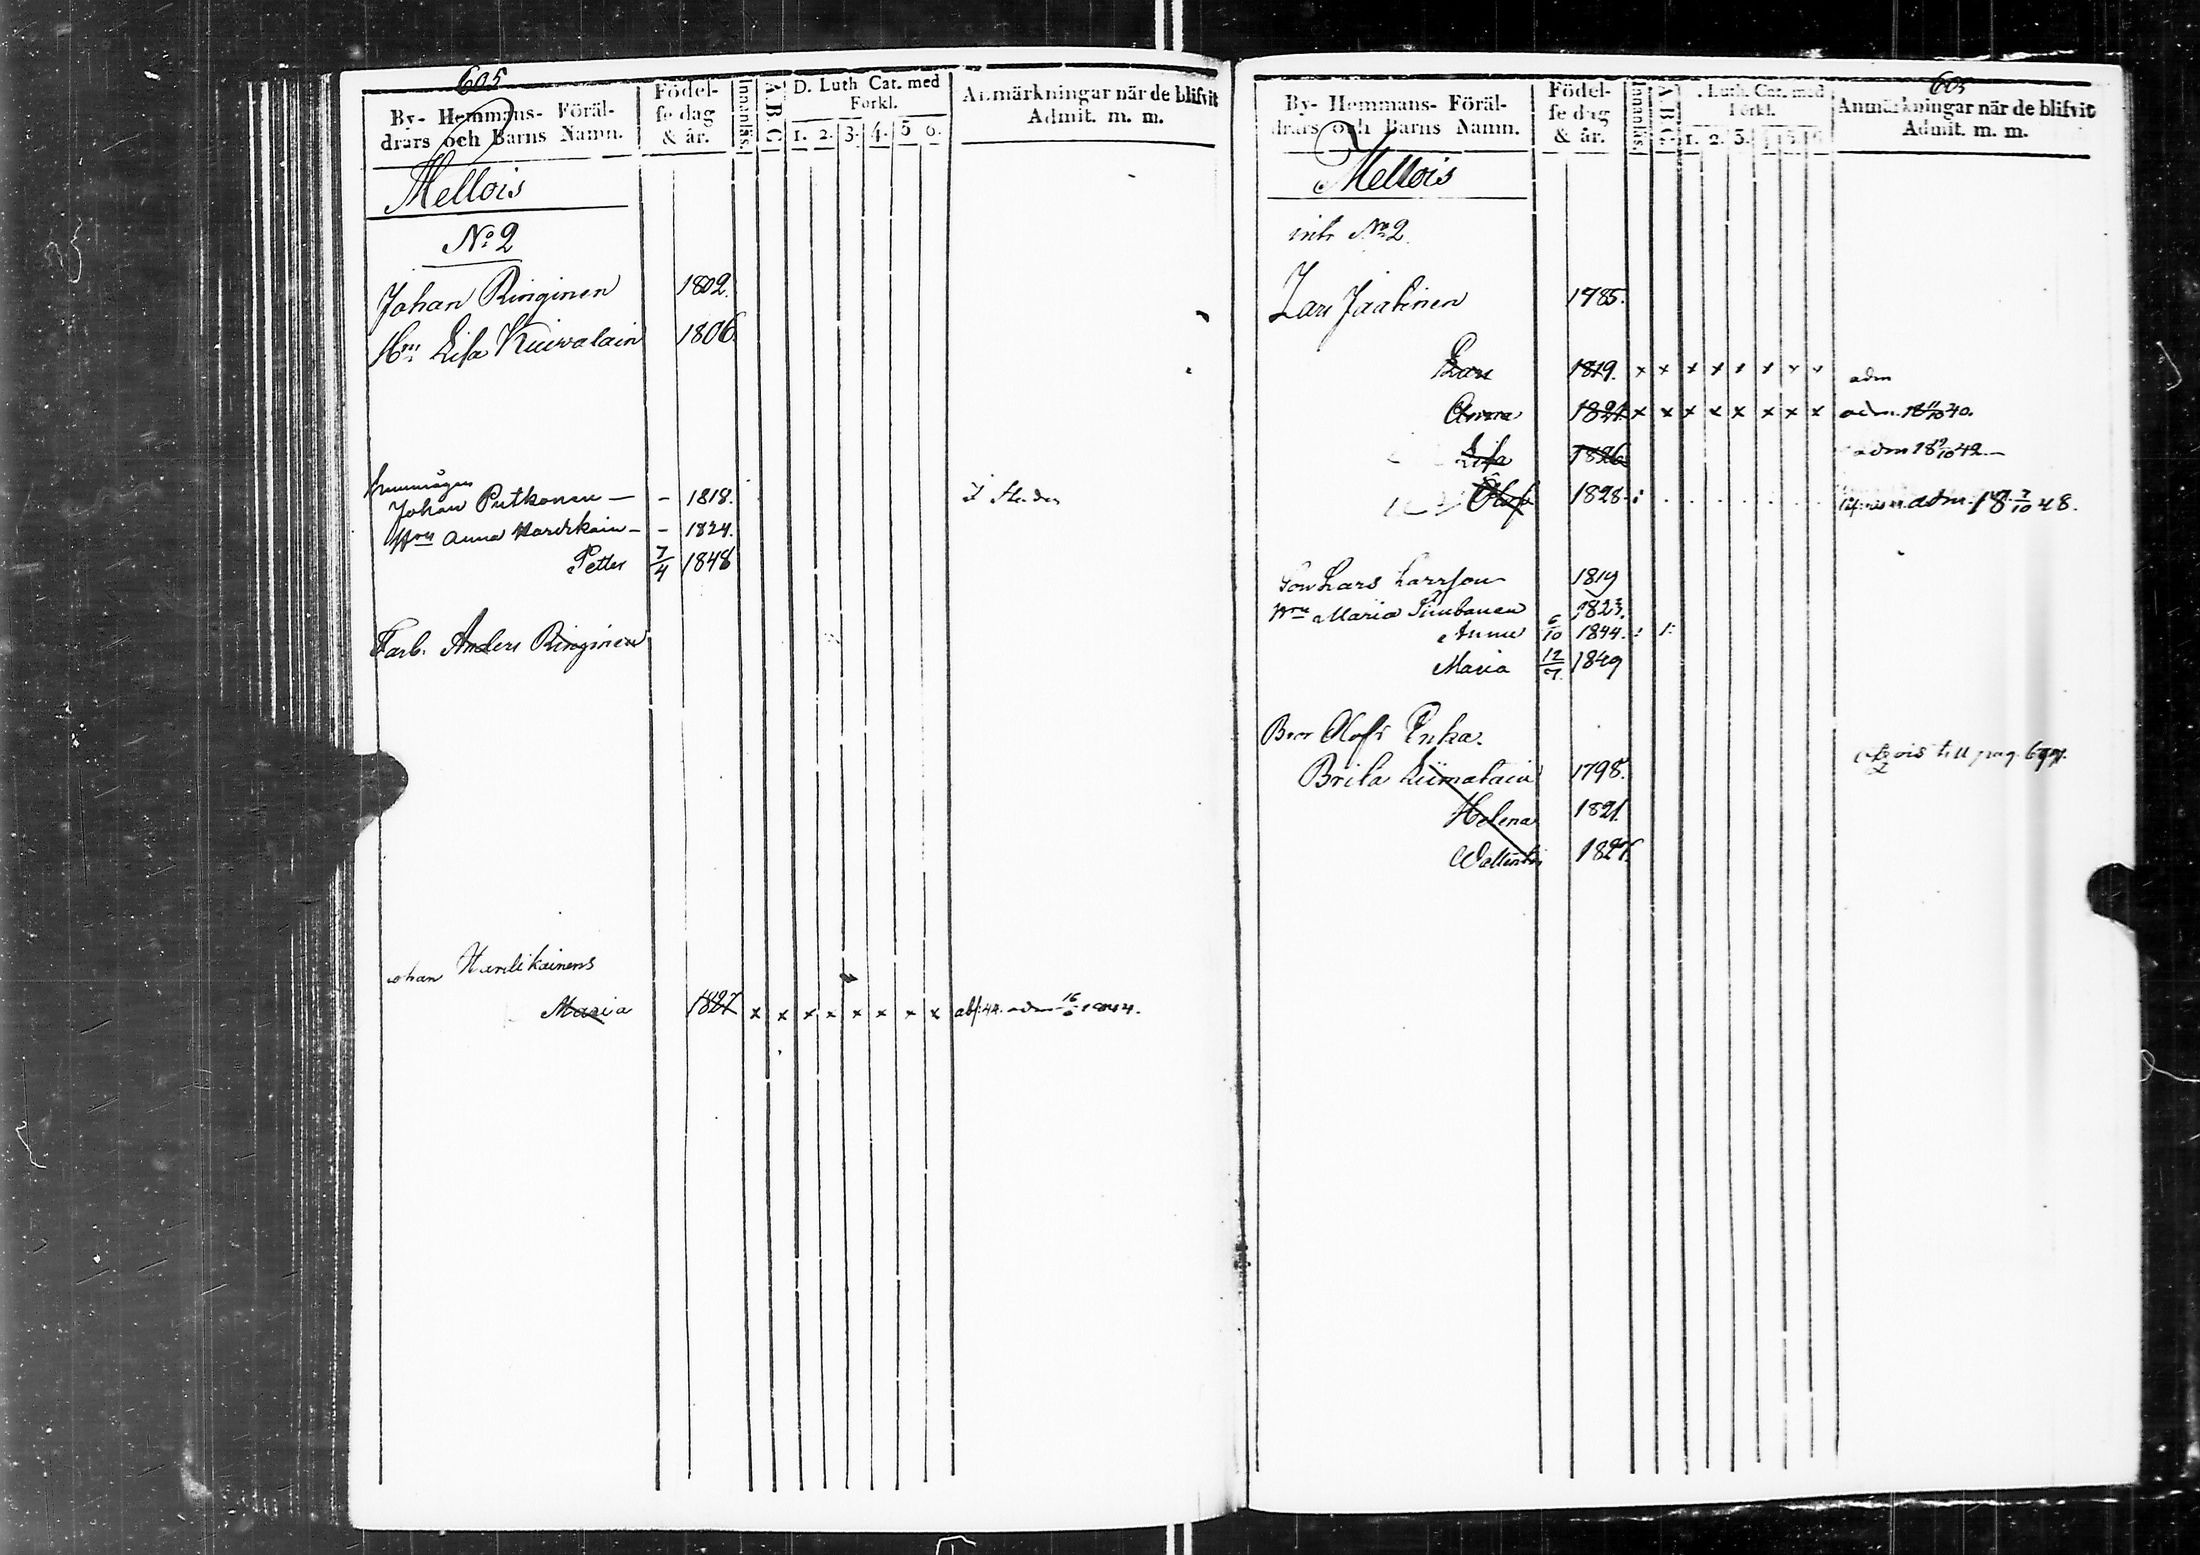 605
By- Hemmans- Föräl-
drars och Barns Namn.
Födel-
se dag
& år.
Innanläs.
A.B.C.
D. Luth. Cat. med
Förkl.
1. 2. 3. 4. 5 6.
Anmärkningar när de blifvit
Admit. m. m.
Mellois
No 2
Johan Ringinen 1802.
Hru Lisa Kuivalain 1806.
Johan Putkonen — - 1818.
Hru Anna - - 1824.
Petter 7/4 1848
Farb. Anders Ringinen
ohan Hardikainens
Maria 1827 x x x x x x x x
605
By- Hemmans- Föräl-
drars och Barns Namn.
Födel-
se dag
& år.
Innanläs.
A.B.C.
. Luth. Cat. med
Förkl.
1. 2. 3. 4 5 6
Anmärkningar när de blifvit
Admit. m. m.
Mellois
No 2.
Lars Jaatinen 1785.
Lars 1819. x x x x x x x x adm
Anna 1821. x x x x x x x x adm.
Lisa 1826 adm
Olof 1828 adm.
Son Lars Larsson 1819
Hru Maria 1823.
Anna 6/10 1844.
Maria 12/7 1849
Bror Olofs Enka.
Brita Liimatain 1798.
Helena 1821.
1827.
till pag.